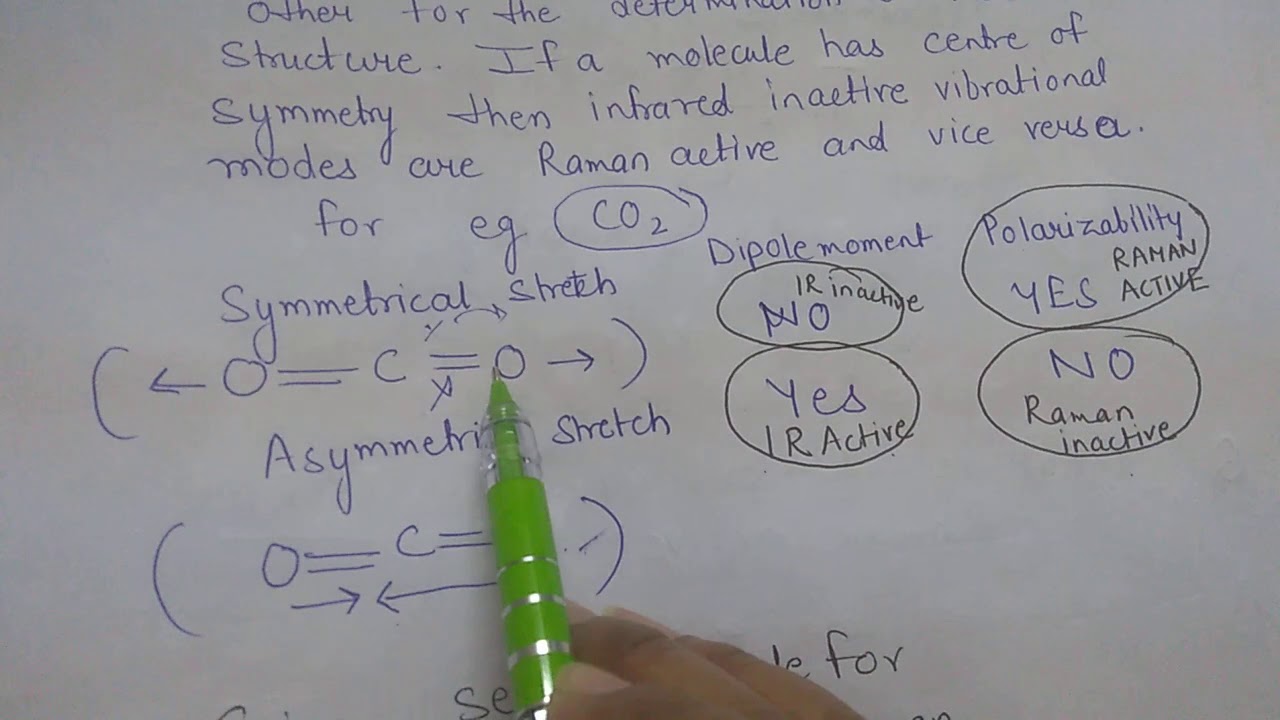 Other for the determination
Structure. If a molecule has centre of
symmetry then infrared inactive vibrational
modes are Raman active and vice versa.
for eg CO2
Dipole moment Polarizability
IR inactive RAMAN
NO YES ACTIVE
Symmetrical Stretch
(← O = C = O →)
Yes NO
IR Active Raman
inactive
Asymmetri Stretch
( O = C = )
→ ←
for